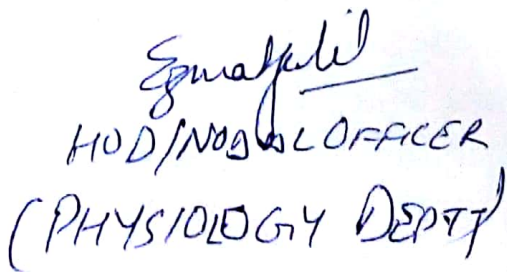 HOD/NODAL OFFICER
(PHYSIOLOGY DEPTT)